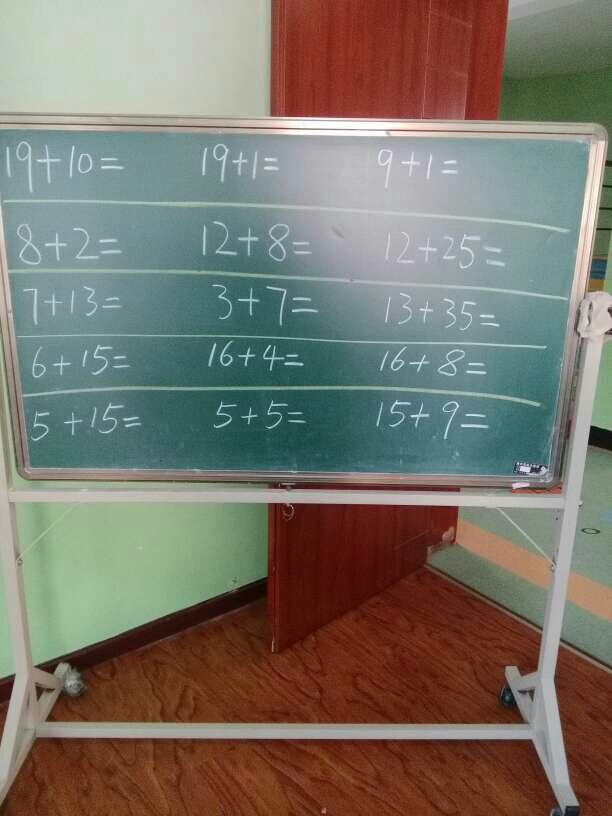 19+10= 19+1= 9+1=
8+2= 12+8= 12+25=
7+13= 3+7= 13+35=
6+15= 16+4= 16+8=
5+15= 5+5= 15+9=